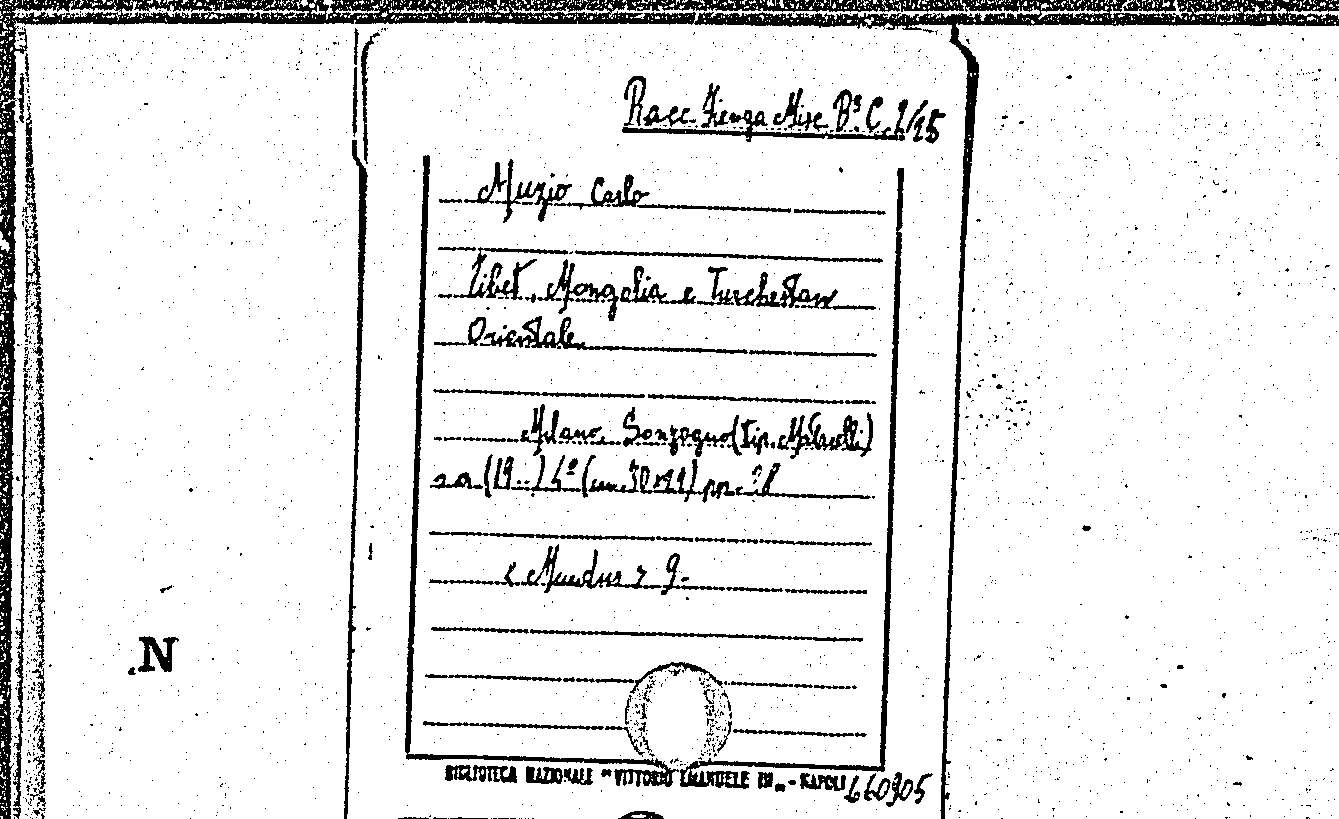 Racc. Fienga Misc. B³. C. 1/15
Muzio Carlo
Tibet, Mongolia e Turchestan
Orientale.
Milano, Sonzogno (tip. Matarelli)
s.a. (19..) 4º (cm. 30x21) pp. 38
< Mundus > 9.
N
BIBLIOTECA NAZIONALE "VITTORIO EMANUELE III" - NAPOLI 660905